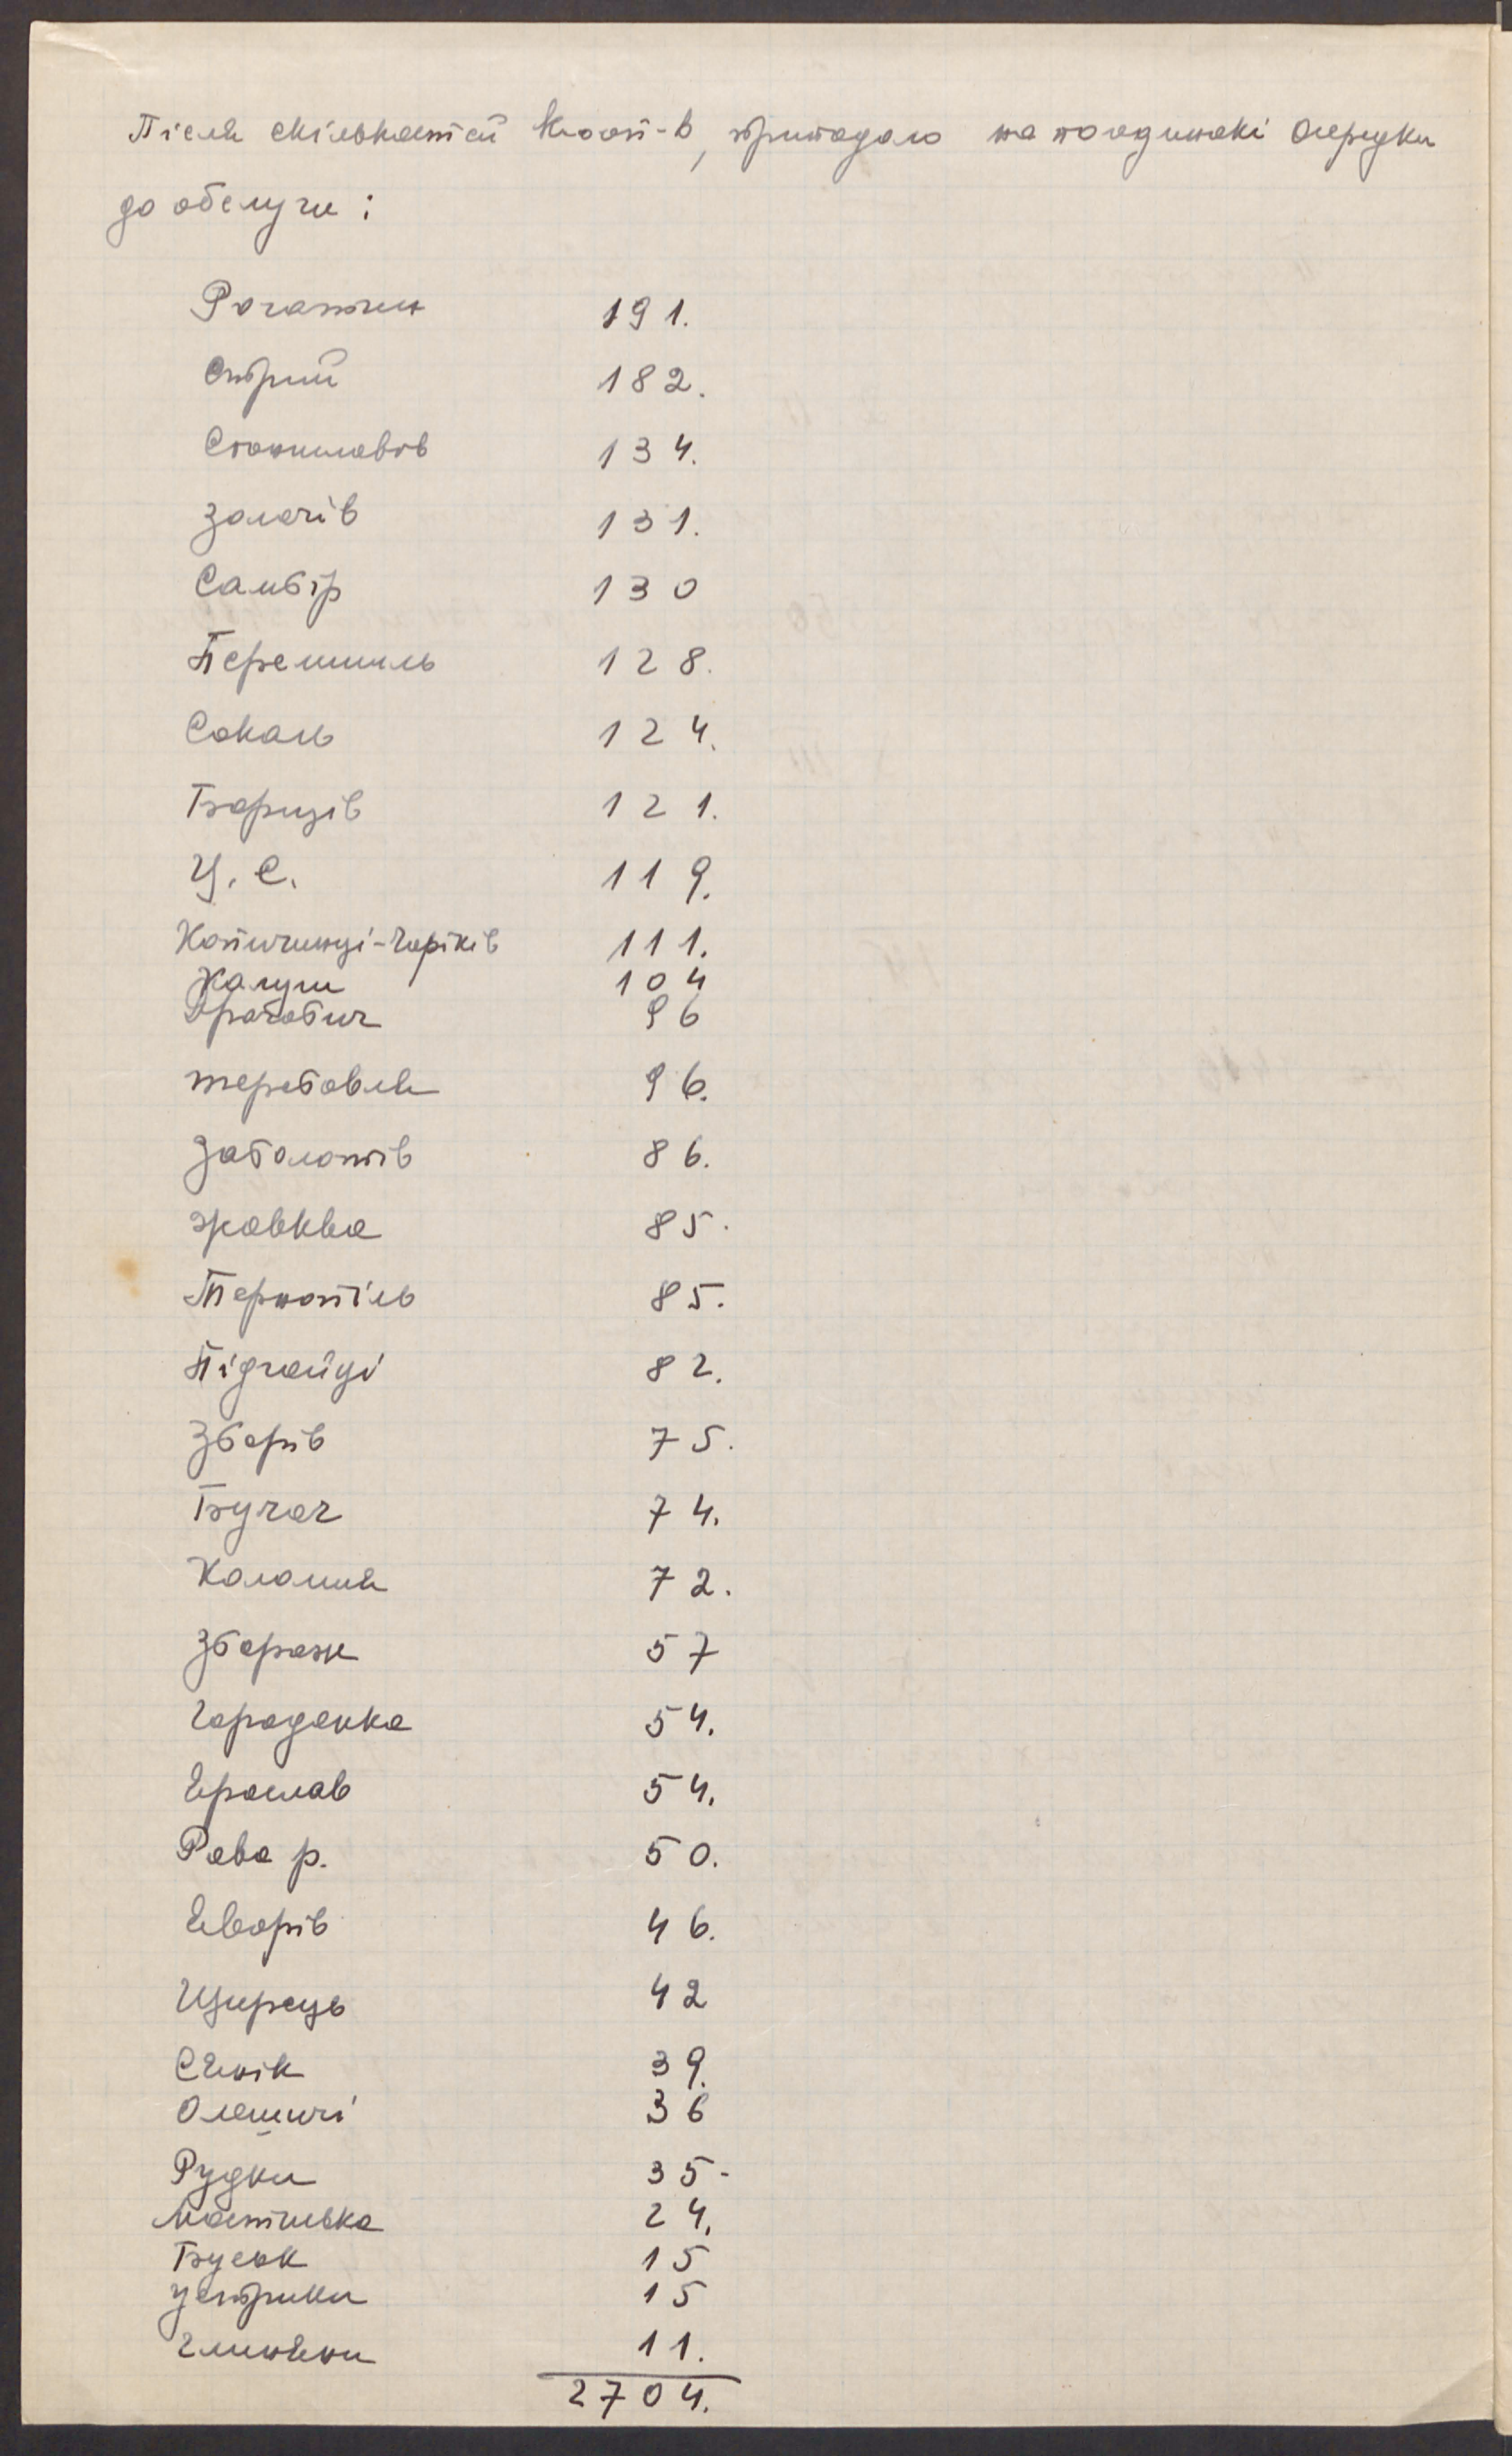 Після скількастей Кооп-в, припадало на поодинокі Осередки
до обслуги :
Рогатин 191.
Стрий 182.
Станиславів 134.
Золочів 131.
Самбір 130
Перемишль 128.
Сокаль 124.
Борщів 121.
Ц. С. 119.
Копичинці-Чортків 111.
Калуш 104
Дрогобич 96
Теребовля 96.
Заболотів 86.
Жовква 85.
Тернопіль 85.
Підгайці 82.
Зборів 75.
Бучач 74.
Коломия 72.
Збараж 57
Городенка 54.
Ярослав 54.
Рава р. 50.
Яворів 46.
Щирець 42
Сянік 39.
Олешичі 36
Рудки 35-
24.
Буськ 15
Устрики 15
Глиняни 11.
2704.